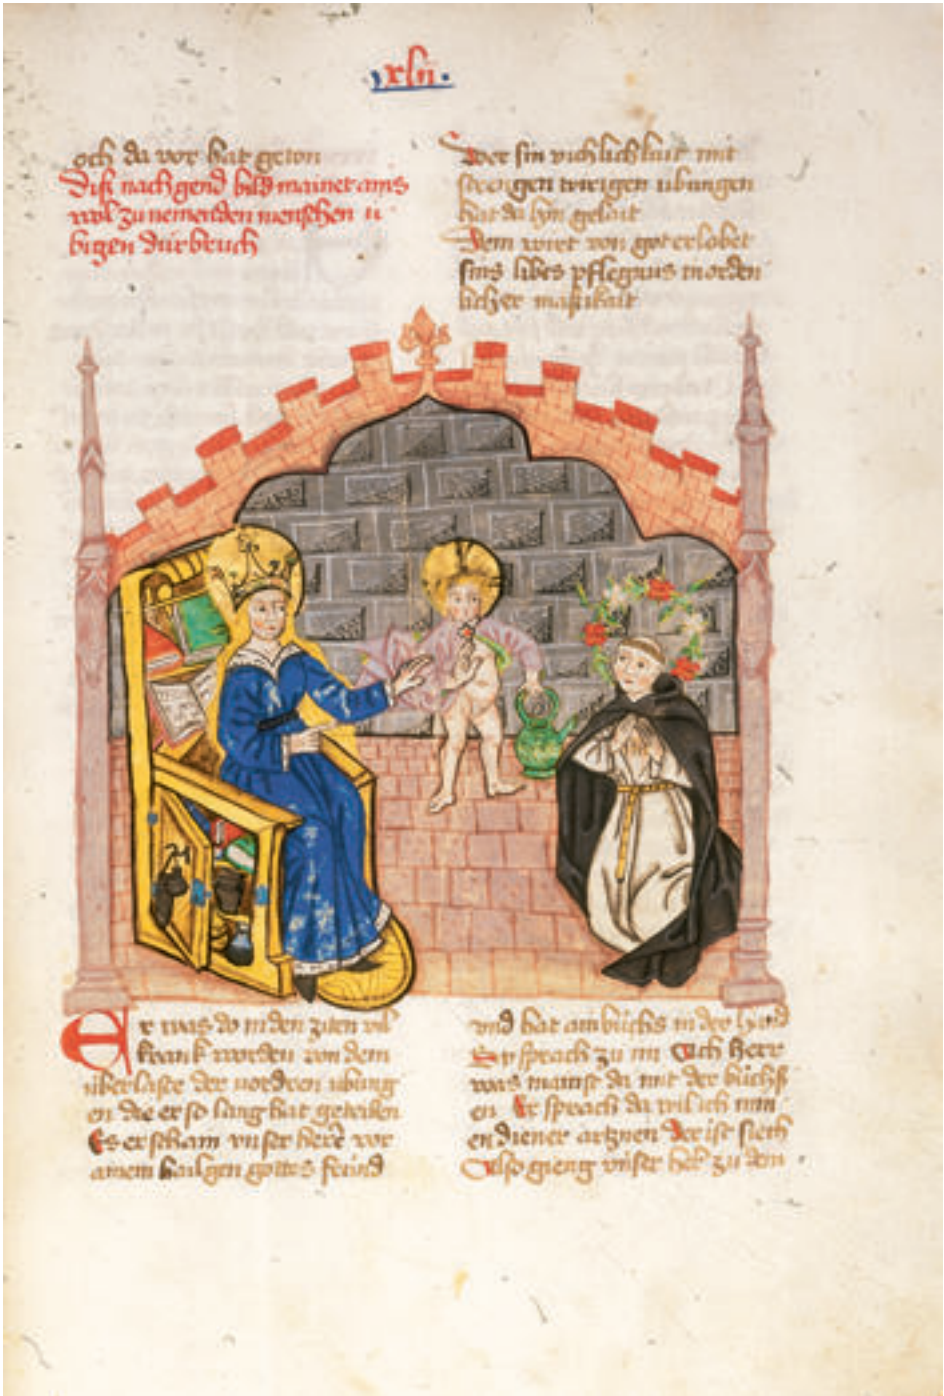 .xlii.
och da vor hat geton
Diß nachgend bild mainet ains
wol zu nemenden menschen ü
bigen durbruch
Wer sin vichlichkait mit
strengen wirigen übungen
hat da hin gelait
Dem wirt von got erlobet
sins libes pflegnus in orden
licher mässikait
Er was do in den ziten vil
krank worden von dem
überlaste der vordren übung
en die er so lang hat getriben
Es erscham vnser herr vor
ainem hailgen gottes fründ
vnd hat ain büchs in der hand
Sy sprach zu im Ach herr
was mainst du mit der büchs
en Er sprach da wil ich min
en diener artznen der ist siech
Also gieng vnser her zu dem